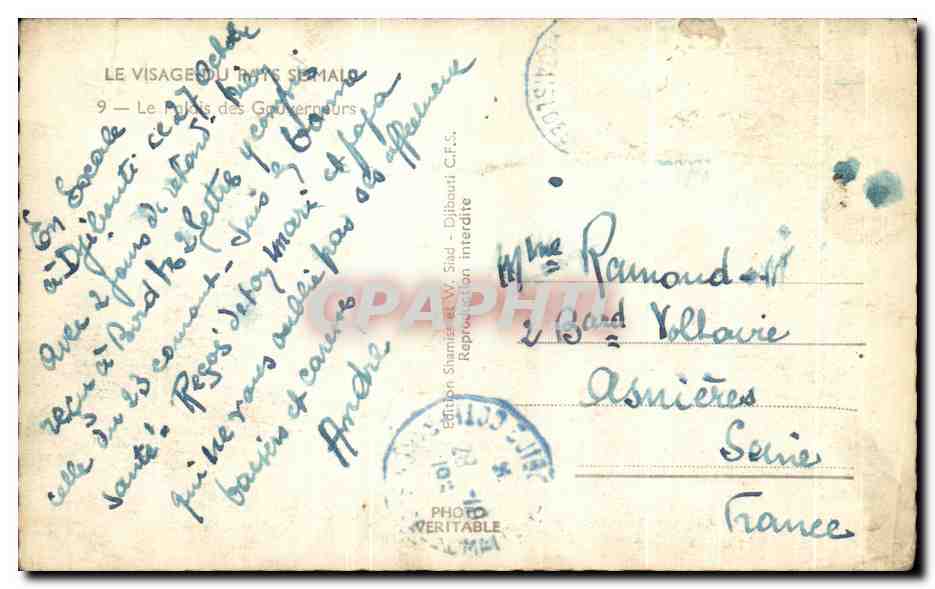 LE VISAGE DU PAYS SOMALI
9 — Le Palais des Gouverneurs
En Escale
à Djibouti ce 27 Octobre
avec 2 jours de retard. bien
reçu à Bord tes 2 lettres y compris
celle du 23 courant - suis en bonne
santé. Reçois de ton mari et papa
qui ne vous oublie pas ses affectueux
baisers et caresses
André
Edition Shamise et W. Siad - Djibouti C.F.S.
Reproduction interdite
PHOTO
VERITABLE
Mme Ramond
2 Bard Voltaire
Asnières
Seine
France
CPAPHIL